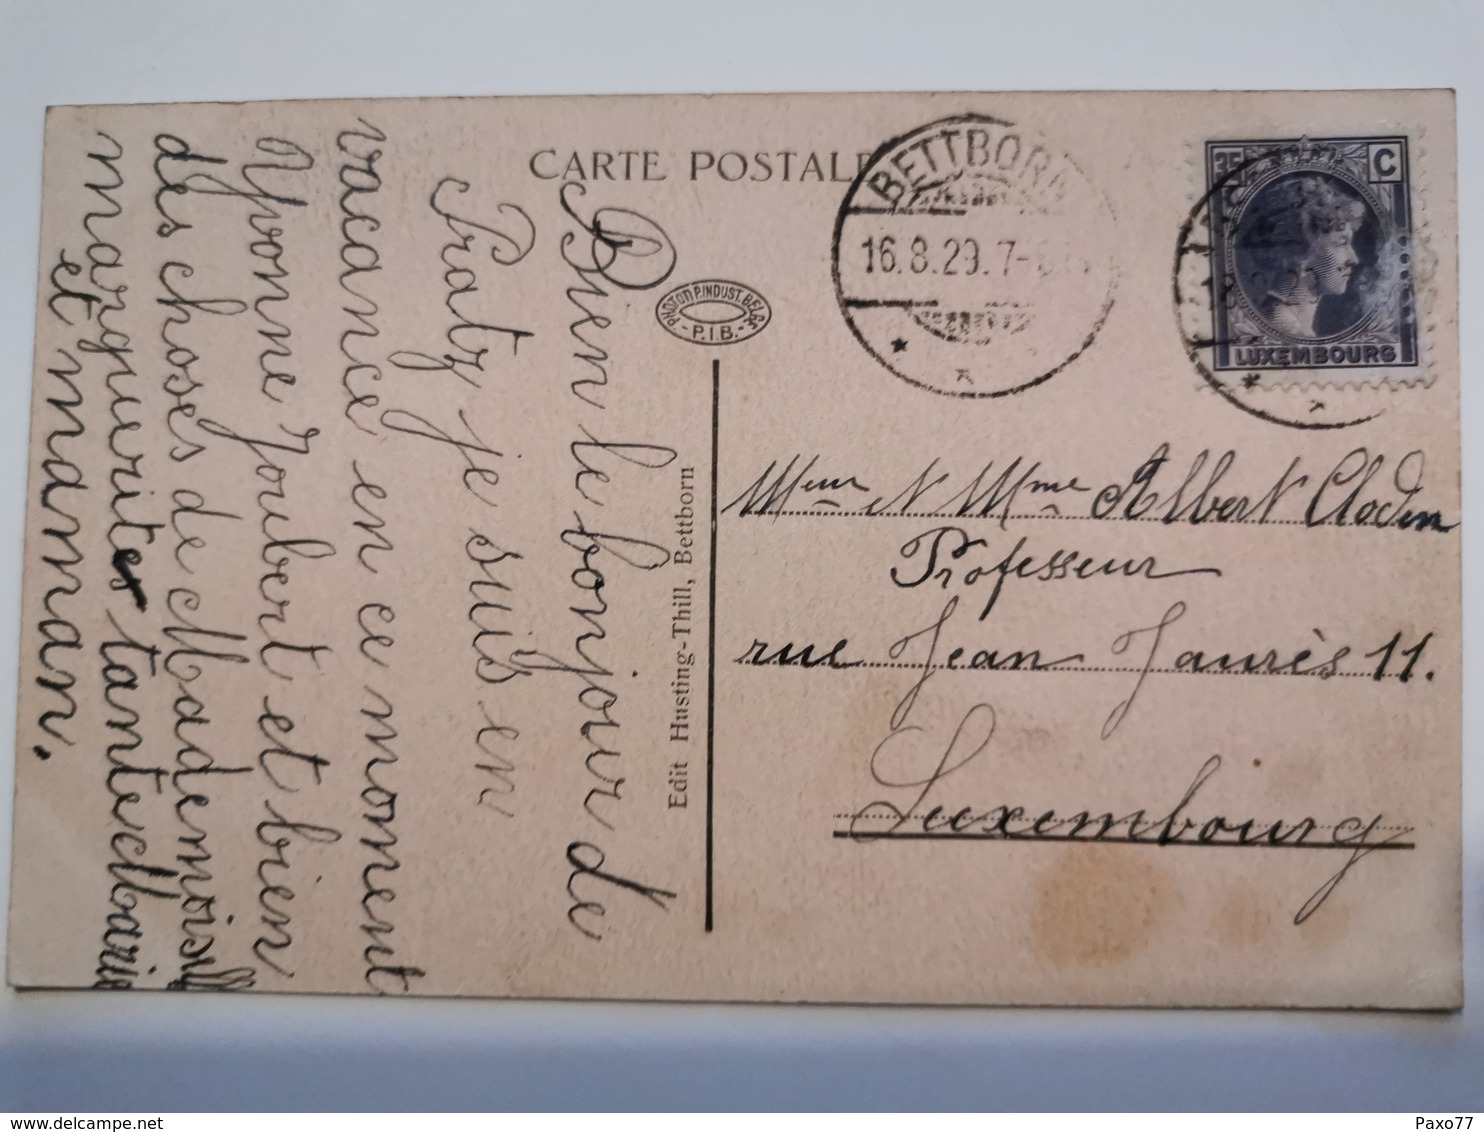 CARTE POSTALE
BETTBORN
16.8.29.7-
35 C
LUXEMBOURG
PHOTOTYP. INDUST. BELGE
- P.I.B. -
Edit Husting-Thill, Bettborn
Bien le bonjour de
Pratz je suis en
vacance en ce moment
Yvonne Joubert et bien
des choses de Mademoisell
marguerites tante Marie
et maman.
et Mme Albert Cloden
Professeur
rue Jean Jaurès 11.
Luxembourg
delcampe.net
Paxo77